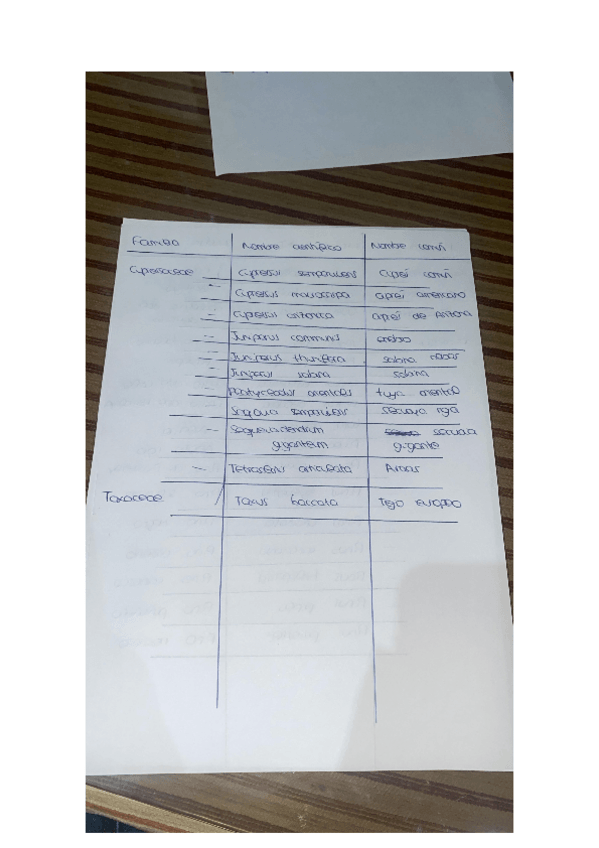 Familia Nombre científico Nombre común
Cupresaceae Cupressus sempervirens Ciprés común
Cupressus macrocarpa ciprés americano
Cupressus arizonica ciprés de Arizona
Juniperus communis enebro
Juniperus thurifera sabina
Juniperus sabina sabina
orientalis tuya oriental
Sequoia sempervirens secuoya roja
Sequoiadendrum secuoya
giganteum gigante
Tetraclinis articulata
Taxaceae Taxus baccata Tejo europeo